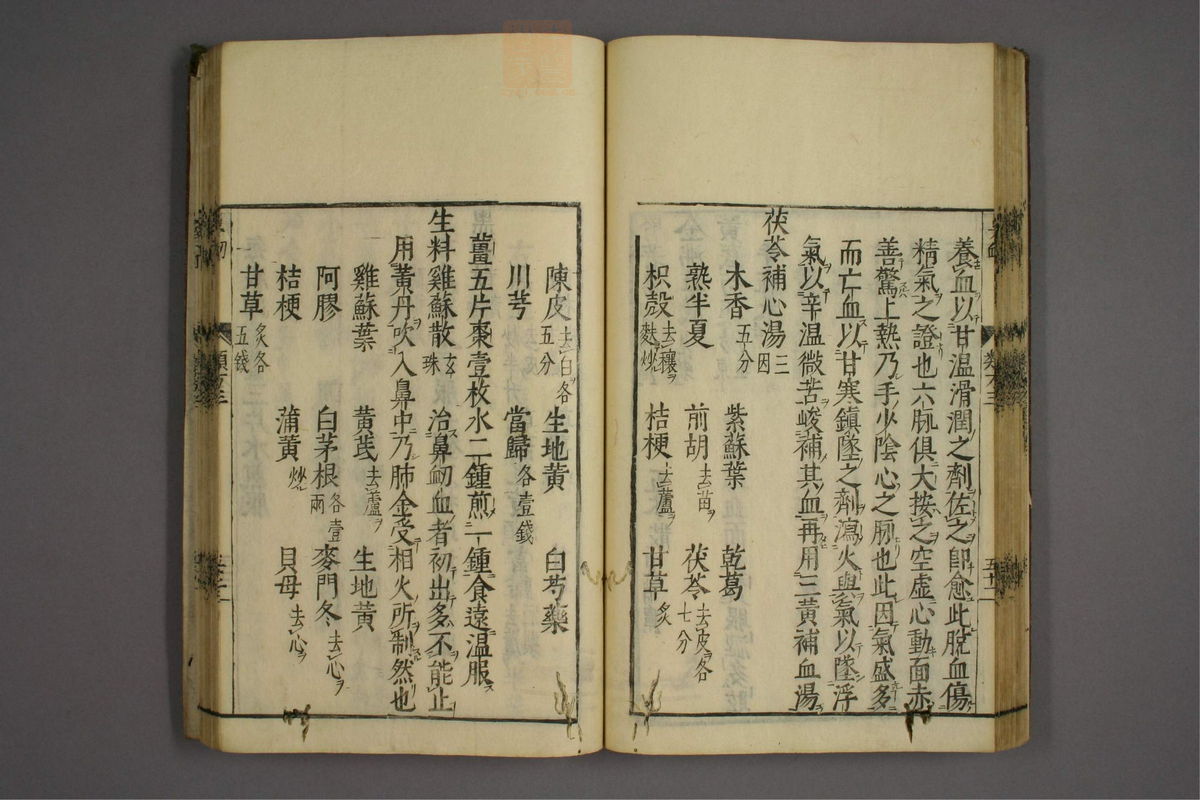 養血以甘温滑潤之劑佐之即愈此脱血傷
精氣之證也六脉俱大按之空虚心動面赤
善驚上熱乃手少陰心之脉也此因氣盛多
而亡血以甘寒鎮墜之劑瀉火與氣以墜浮
氣以辛温微苦峻補其血再用三黄補血湯
茯苓補心湯 三因
木香 五分 紫蘇葉 乾葛
熟半夏 前胡 去苗 茯苓 去皮各七分
枳殻 去穰麩炒 桔梗 去蘆 甘草 炙
陳皮 去白各五分 生地黄 白芍藥
川芎 當歸 各壹錢
薑五片棗壹枚水二鍾煎一鍾食遠温服
生料雞蘇散 玄珠 治鼻衂血者初出多不能止
用黄丹吹入鼻中乃肺金受相火所制然也
雞蘇葉 黄芪 去蘆 生地黄
阿膠 白茅根 各壹兩 麥門冬 去心
桔梗 蒲黄 炒 貝母 去心
甘草 炙各五錢